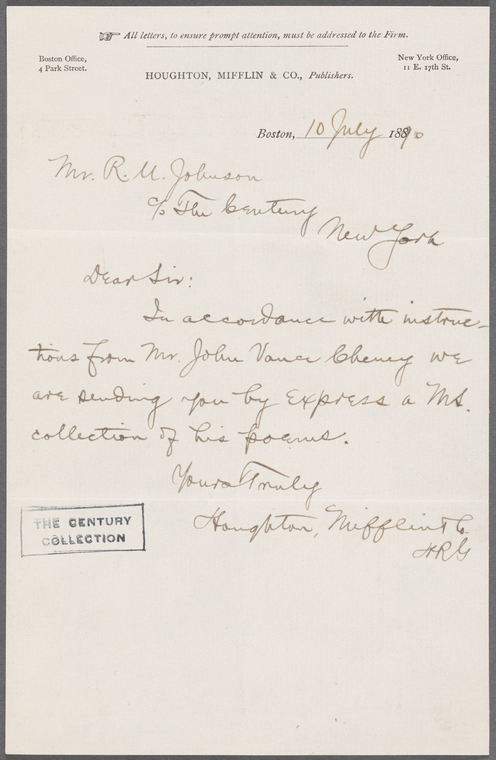 ☞ All letters, to ensure prompt attention, must be addressed to the Firm.
Boston Office,
4 Park Street.
New York Office,
11 E. 17th St.
HOUGHTON, MIFFLIN & CO., Publishers.
Boston, 10 July 1890
Mr. R. U. Johnson
c/o The Century
New York
Dear Sir:
In accordance with instruc-
tions from Mr. John Vance Cheney we
are sending you by Express a Ms.
collection of his poems.
Yours Truly
Houghton, Mifflin & Co.
HRG
THE CENTURY
COLLECTION